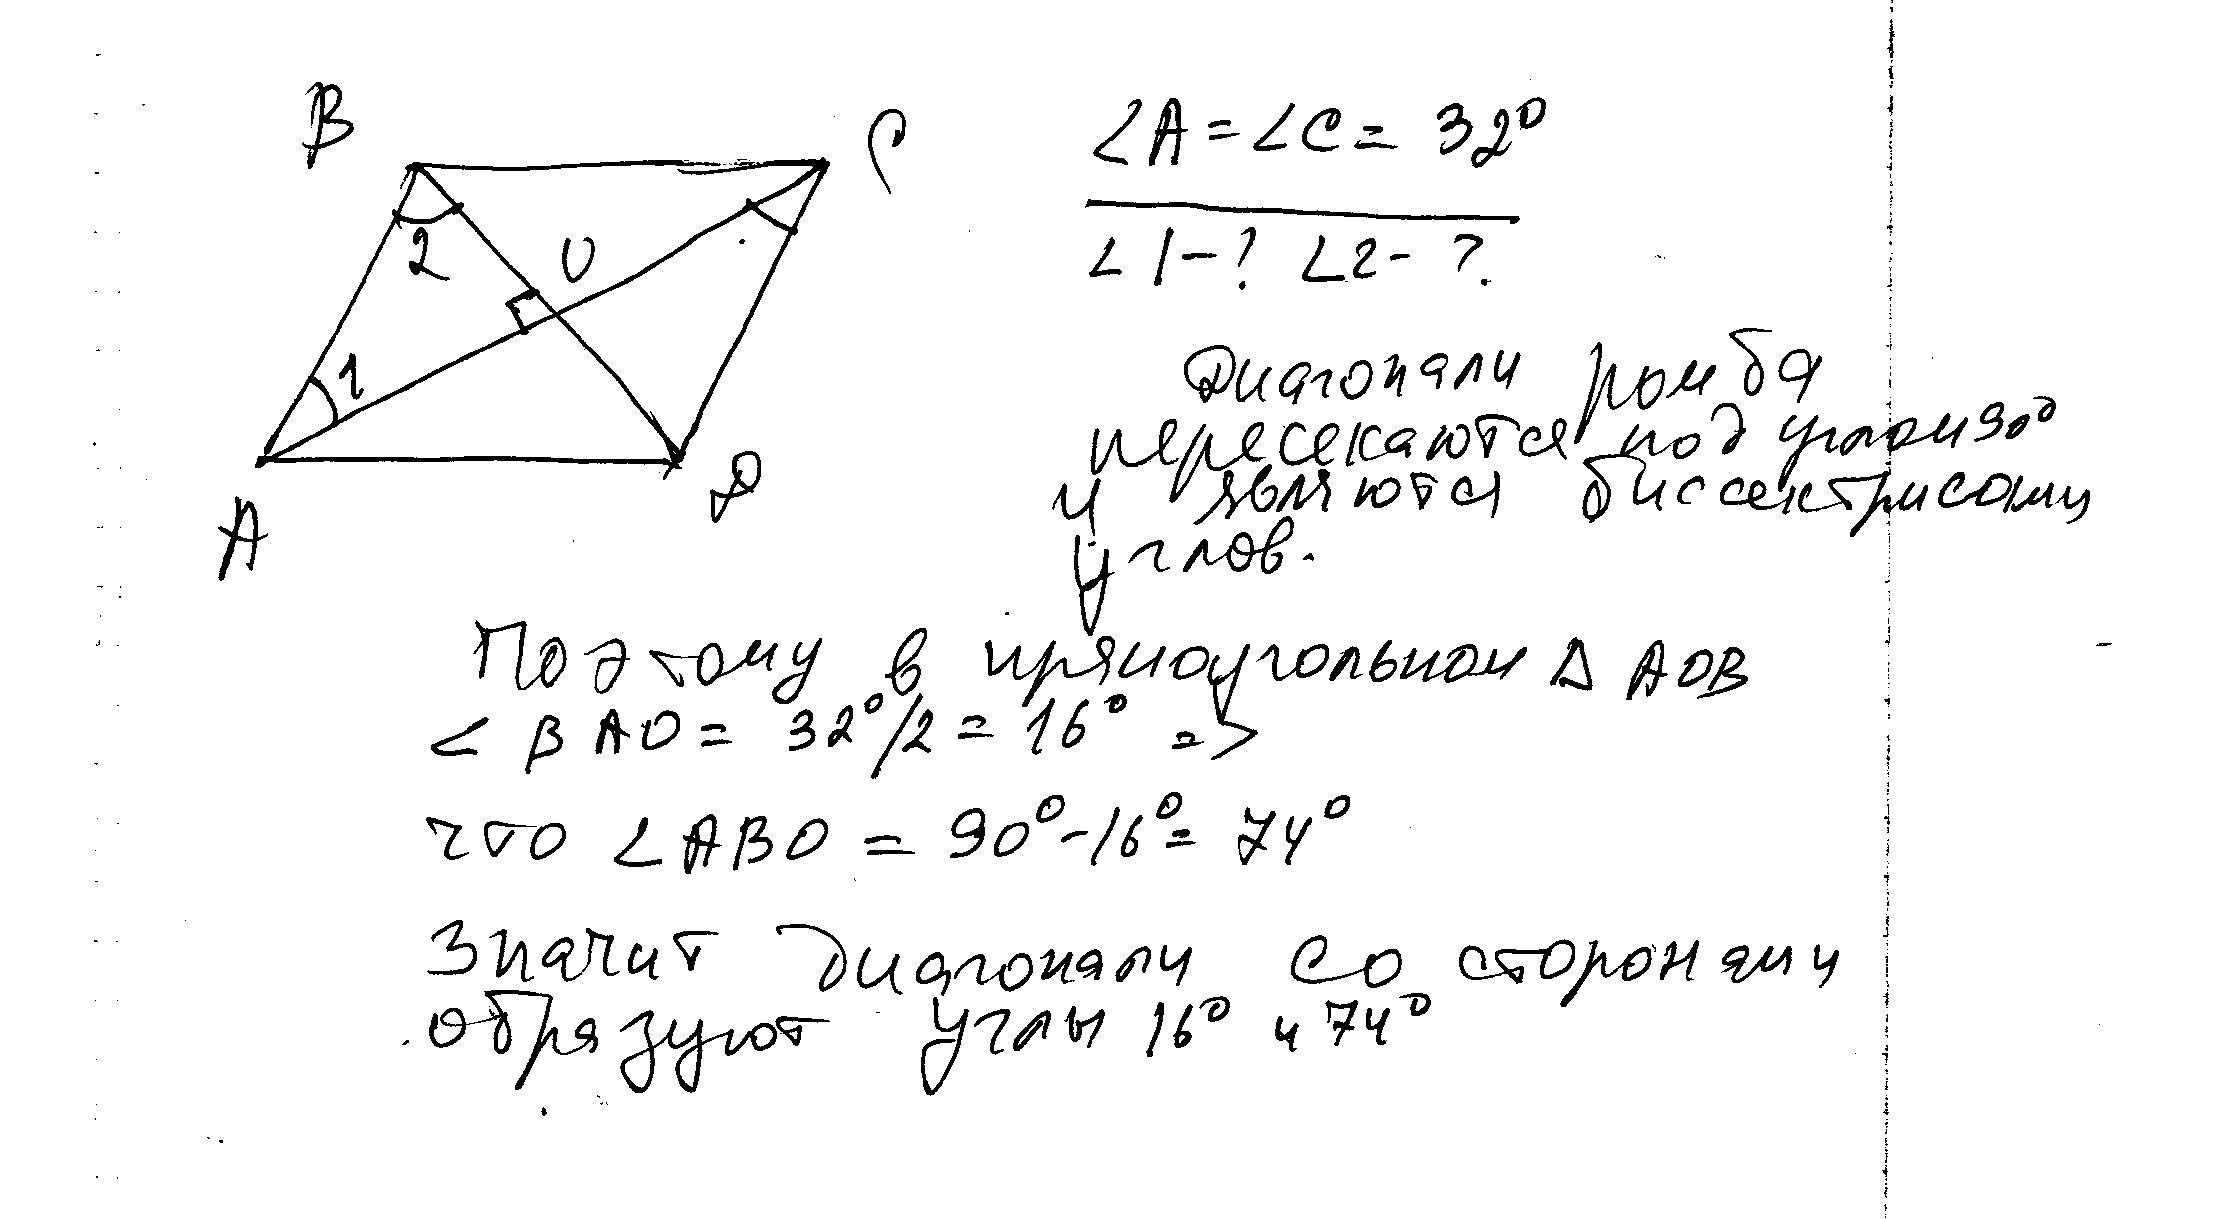 B
C
∠A = ∠C = 32°
2
O
∠1 - ? ∠2 - ?
1
A
D
Диагонали ромба
пересекаются под углом 90°
и являются биссектрисами
углов.
Поэтому в прямоугольном Δ AOB
∠ BAO = 32°/2 = 16° =>
что ∠ABO = 90° - 16° = 74°
Значит диагонали со сторонами
образуют углы 16° и 74°